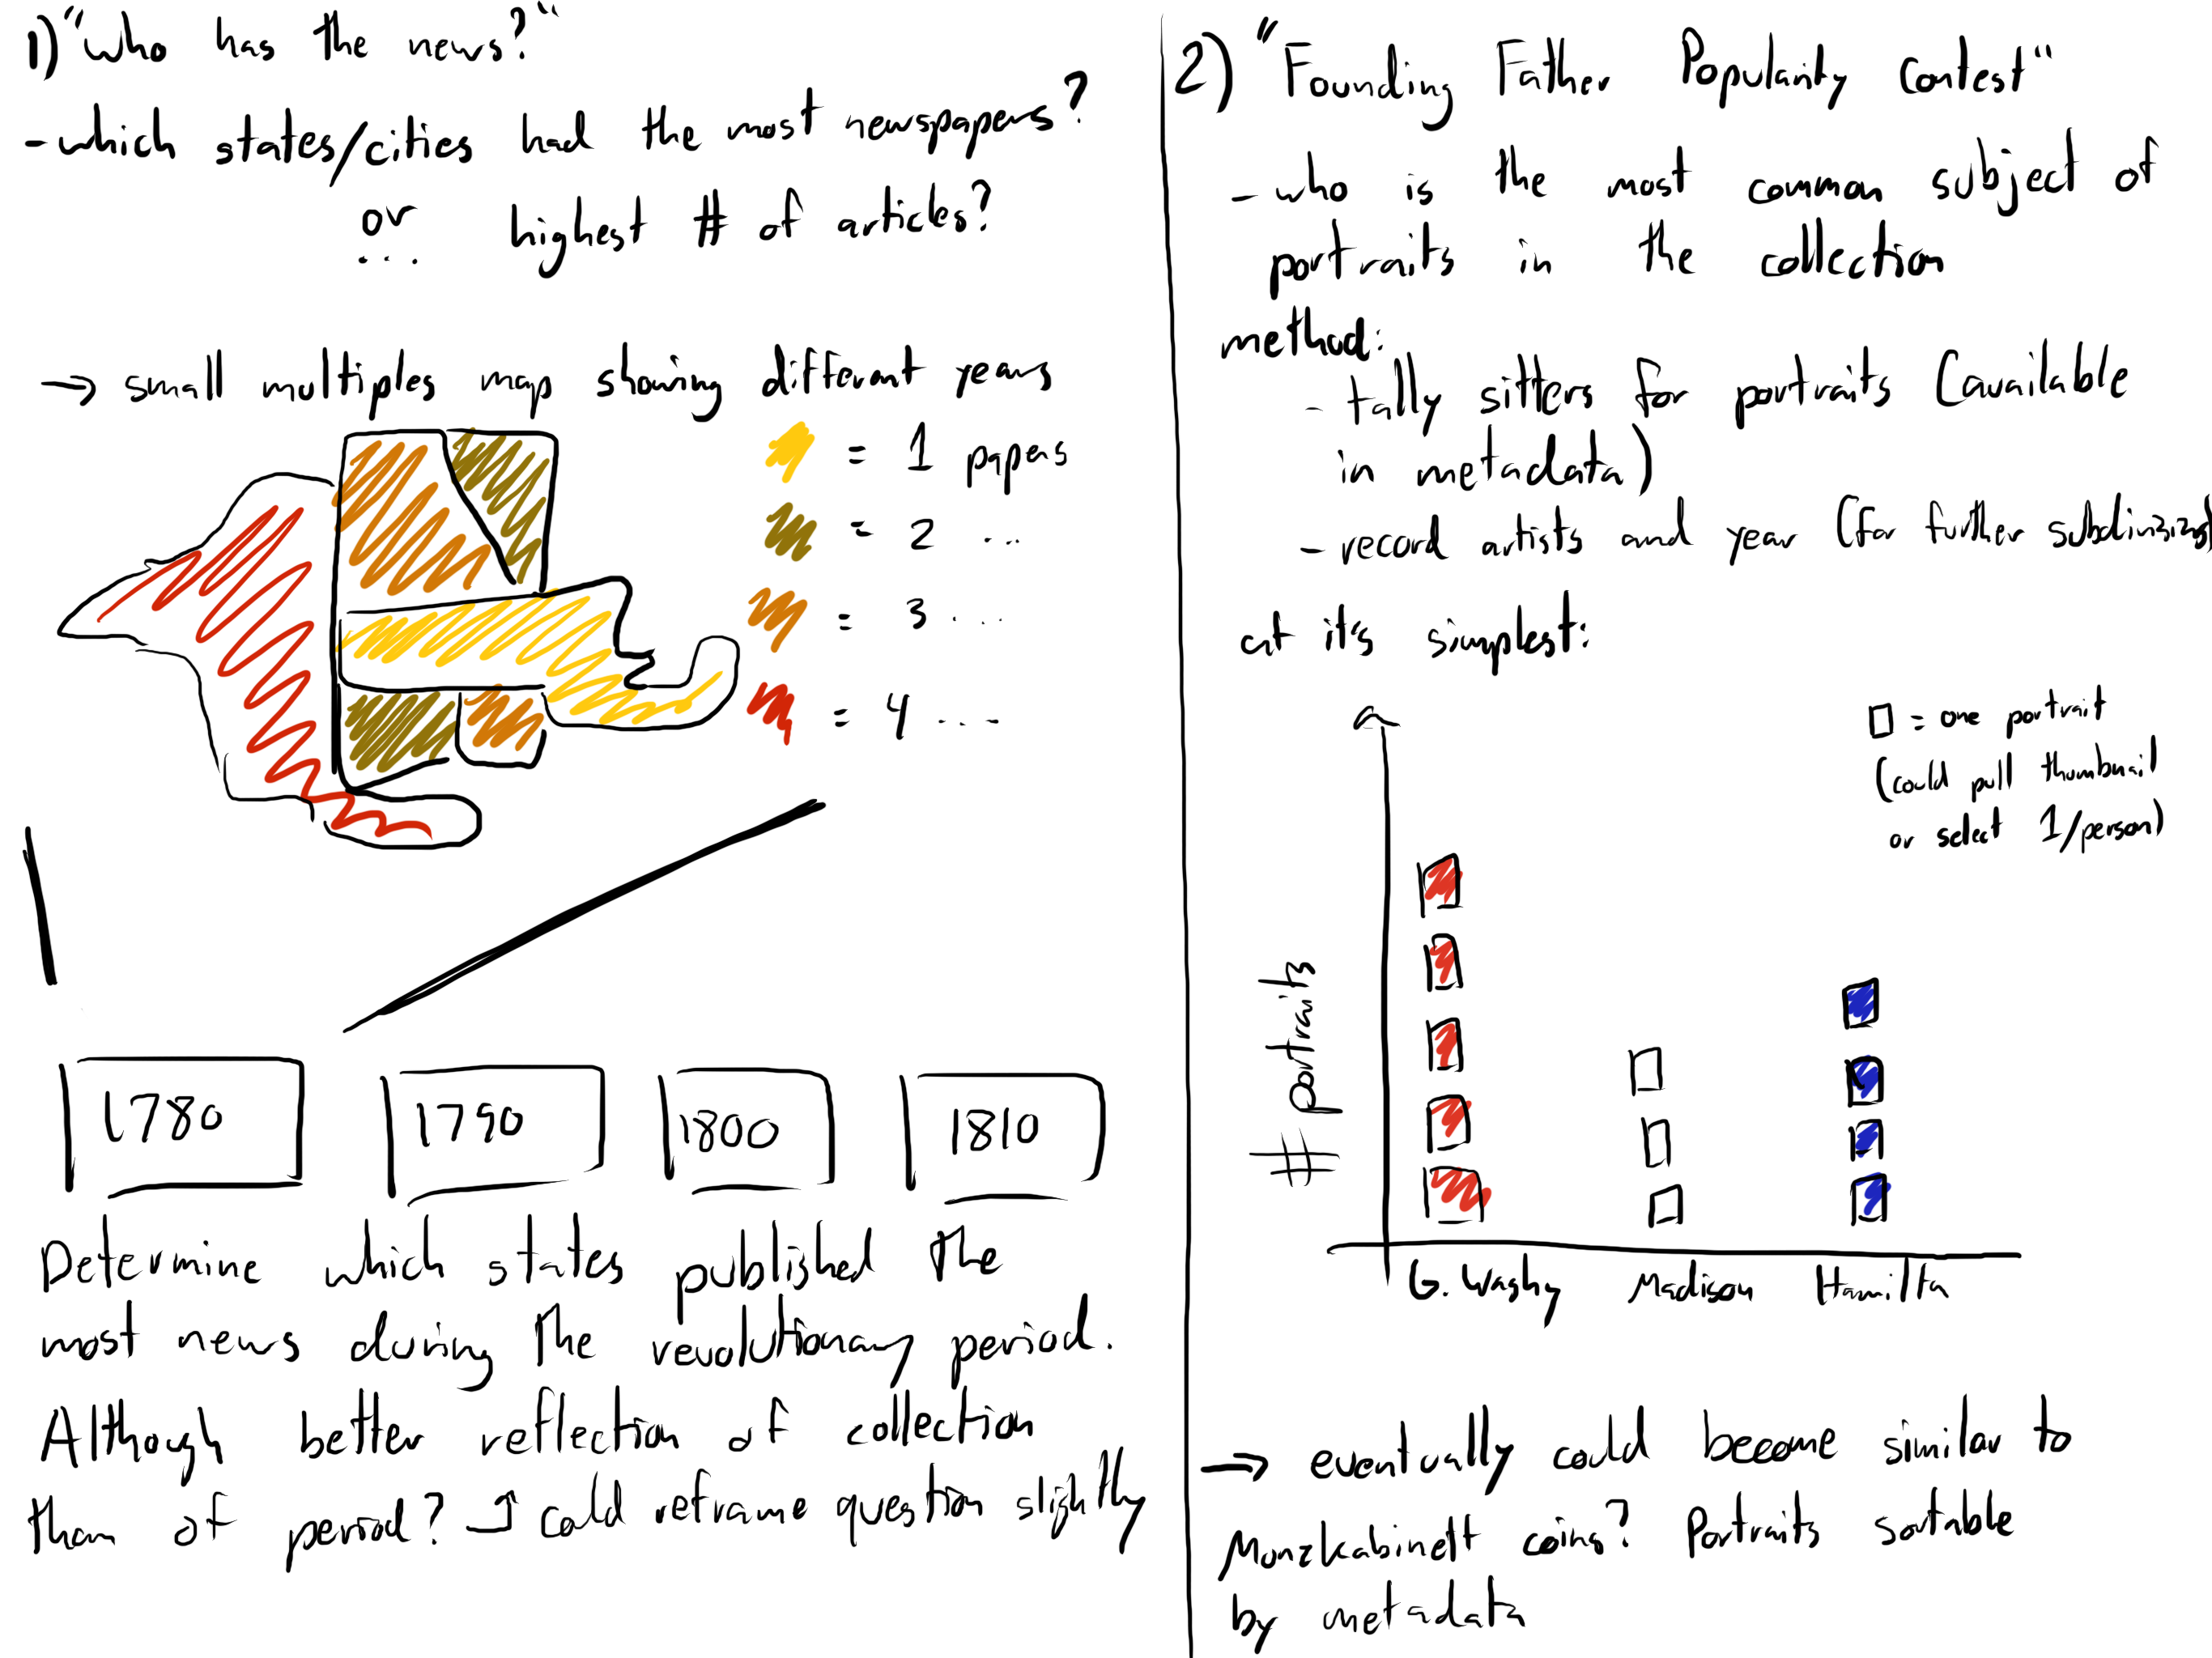 1) "Who has the news?"
- which states/cities had the most newspapers?
or highest # of articles?
...
→ small multiples map showing different years
= 1 papers
= 2 ...
= 3 ...
= 4 ...
1780 1790 1800 1810
Determine which states published the
most news during the revolutionary period.
Although better reflection of collection
than of period? → could reframe question slightly
2) "Founding Father Popularity Contest"
- who is the most common subject of
portraits in the collection
method:
- tally sitters for portraits (available
in metadata)
- record artists and year (for further subdivizing)
at it's simplest:
□ = one portrait
(could pull thumbnail
or select 1/person)
# portraits
G. Washy Madison Hamilta
→ eventually could become similar to
Munzkabinett coins? Portraits sortable
by metadata